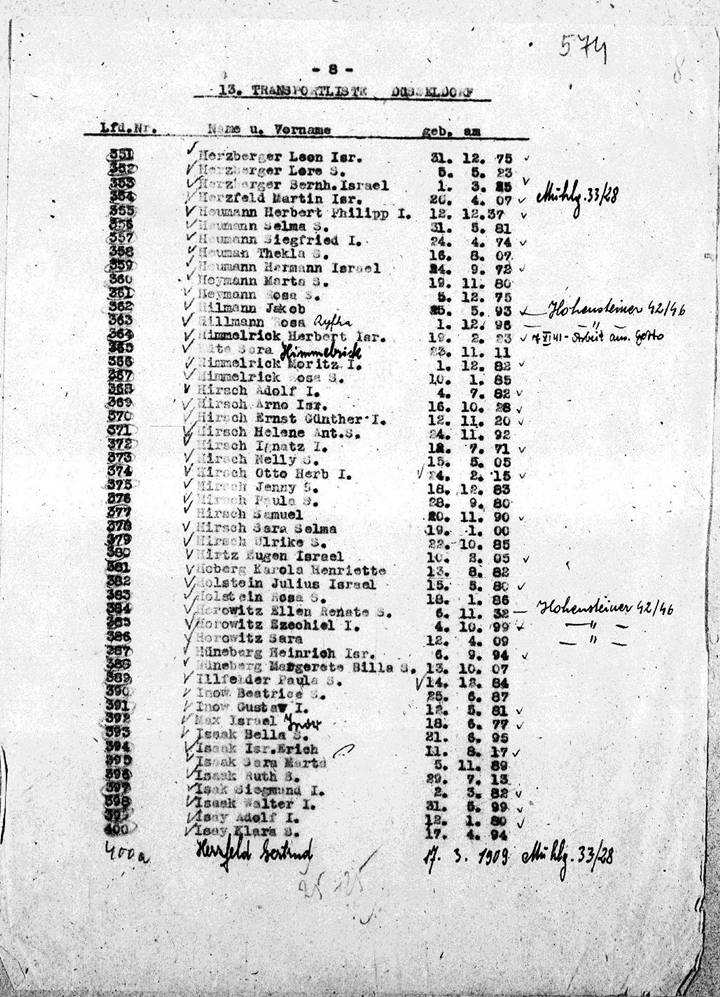 574
8
- 8 -
13. TRANSPORTLISTE DÜSSELDORF
Lfd.Nr. Name u. Vorname geb. am
351 Herzberger Leon Isr. 31. 12. 75
352 Herzberger Lore S. 5. 5. 23
353 Herzberger Bernh. Israel 1. 3.
354 Herzfeld Martin Isr. 26. 4. 07 Mühlg. 33/28
355 Heumann Herbert Philipp I. 12. 12.37
356 Heumann Selma S. 31. 5. 81
357 Heumann Siegfried I. 24. 4. 74
358 Heuman Thekla S. 16. 8. 07
359 Heumann Hermann Israel 24. 9. 72
360 Heymann Marta S. 19. 11. 80
361 Heymann Rosa S. 5. 12. 75
362 Hilmann Jakob 25. 5. 93 Hohensteiner 42/46
363 Hillmann Rosa Ryfka 1. 12. 96 — " —
364 Himmelrick Herbert Isr. 19. 2. 23 Arbeit aus. Getto
365 Sara Himmelrick 23. 11. 11
366 Himmelrick Moritz I. 1. 12. 82
367 Himmelrick Rosa S. 10. 1. 85
368 Hirsch Adolf I. 4. 7. 82
369 Hirsch Arno Isr. 16. 10. 28
370 Hirsch Ernst Günther I. 12. 11. 20
371 Hirsch Helene Ant.S. 24. 11. 92
372 Hirsch Ignatz I. 12. 7. 71
373 Hirsch Nelly S. 15. 5. 05
374 Hirsch Otto Herb I. 14. 2. 15
375 Hirsch Jenny S. 18. 12. 83
376 Hirsch Paula S. 28. 9. 80
377 Hirsch Samuel 20. 11. 90
378 Hirsch Sara Selma 19. 1. 00
379 Hirsch Ulrike S. 22. 10. 85
380 Hirtz Eugen Israel 10. 2. 05
381 Hoberg Karola Henriette 13. 8. 82
382 Holstein Julius Israel 15. 5. 80
383 Holstein Rosa S. 18. 1. 86
384 Horowitz Ellen Renate S. 6. 11. 32 Hohensteiner 42/46
385 Horowitz Ezechiel I. 4. 10. 99 — " —
386 Horowitz Sara 12. 4. 09 — " —
387 Hüneberg Heinrich Isr. 6. 9. 94
388 Hüneberg Margarete Billa S. 13. 10. 07
389 Illfelder Paula S. 14. 12. 84
390 Inow Beatrice S. 25. 6. 87
391 Inow Gustav I. 12. 5. 81
392 Max Israel Inow 18. 6. 77
393 Isaak Bella S. 21. 6. 95
394 Isaak Isr.Erich 11. 8. 17
395 Isaak Sara Marta 5. 11. 89
396 Isaak Ruth S. 29. 7. 13
397 Isak Siegmund I. 2. 3. 82
398 Isaak Walter I. 31. 5. 99
399 Isay Adolf I. 12. 1. 80
400 Isay Klara S. 17. 4. 94
400a Herzfeld Gertrud 17. 3. 1909 Mühlg. 33/28
25 25